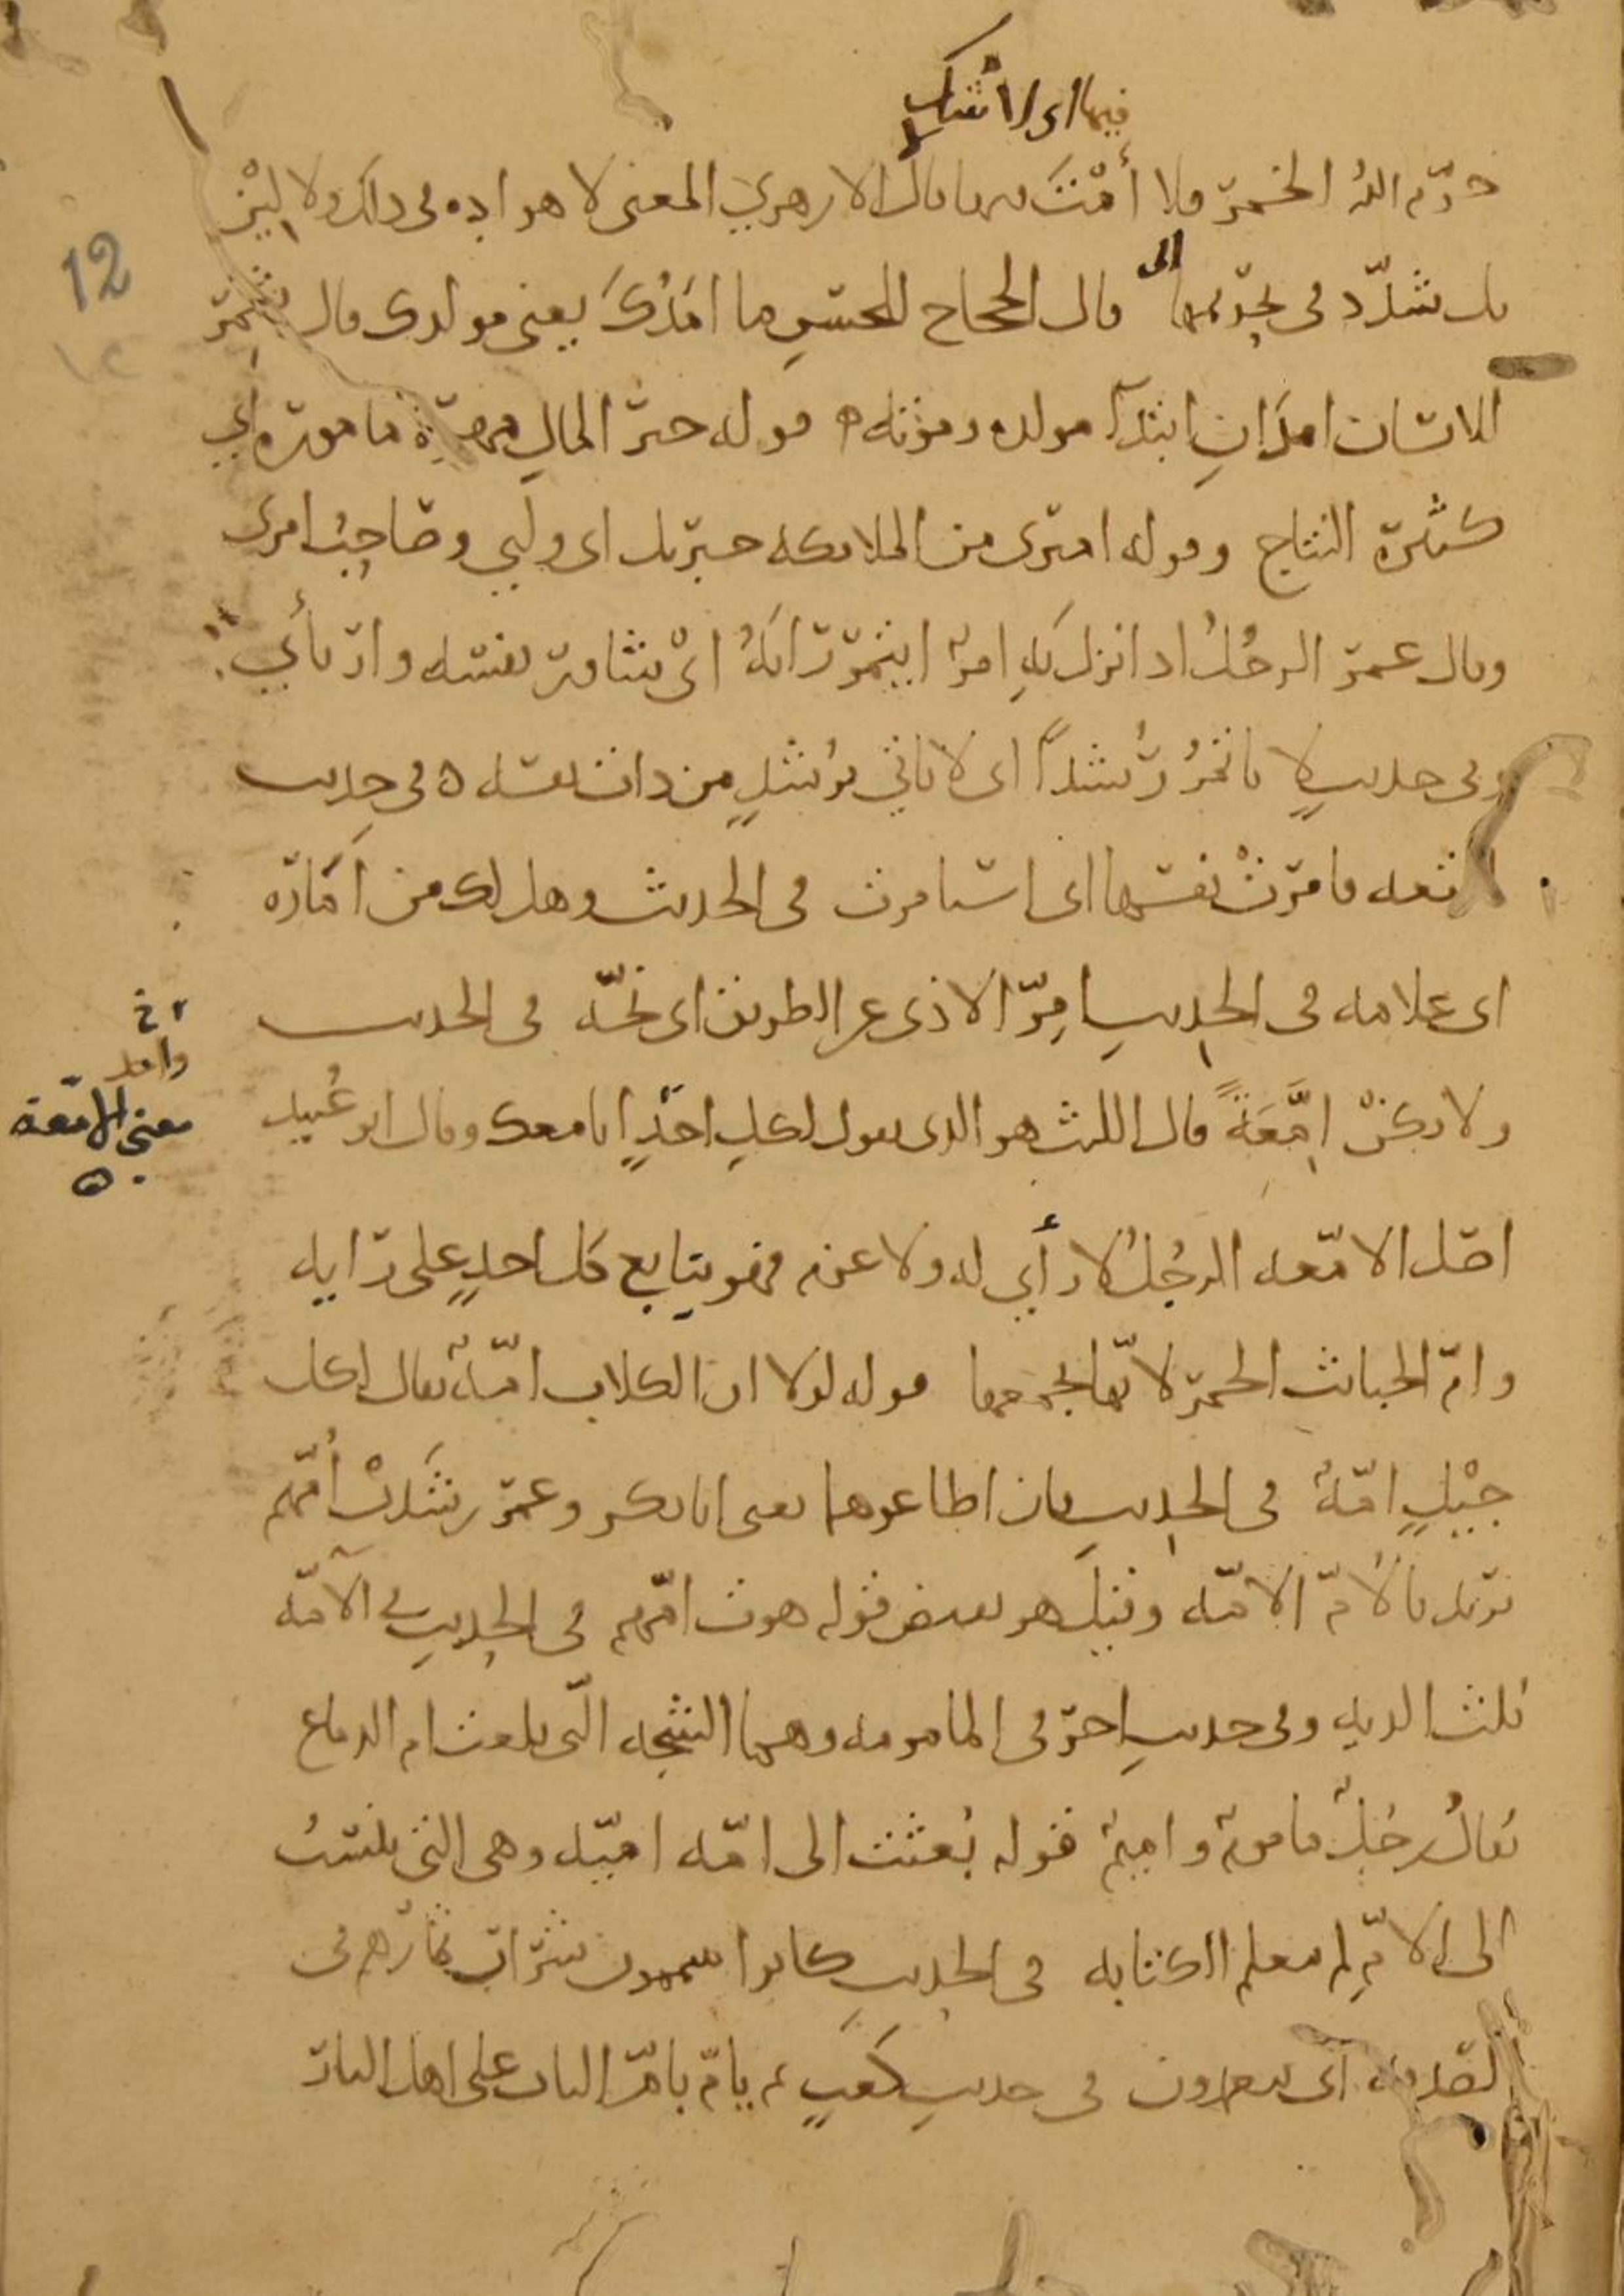 فيها اى لا شك
حرّم اللهُ الخمرَ فلا أَمْتَ فيها قال الازهري المعنى لا هواده فى ذلك ولا لِيْن
بل شدّد فى تحريمها قال الحجاج للحسَنِ ما امَدُكَ يعنى مولدى قال شمر
للانسان امدَانِ ابتدآ مولده وموته ٥ قوله خير المال مهرة مامورة اي
كثيرة النتاج وقوله اميرى من الملائكه جبريل اى وليى وصاحِبُ امرى
وقال عمر الرجُلُ اذا نزل بهِ امرٌ ايتمر رَايَهُ اىْ شاور نفسه وارتأي
وفى حديثٍ لا ياتمرُ رُشداً اى لا ياتى برُشدٍ من ذات نفسه ٥ فى حدِيث
المتعه فامرَتْ نفسها اى استامرت فى الحديث وهل لك من امَارَه
اى علامه فى الحدِيثِ امِرّ الاذى عن الطريق اى نحّه فى الحديث
ولا تكنْ اِمَّعَةً قال الليث هو الذى يقول لكلِ احَدٍ انا معك وقال ابو عُبيد
معنى الامّعة
اصل الامّعه الرجُلُ لا رأي له ولا عزم فهو يتابع كل احدٍ على رَايه
وامّ الخبائث الخمر لانّها تجمعها قوله لولا ان الكلاب امّةٌ يقال لكل
جِيْلٍ امّةٌ فى الحدِيثِ فان اطاعوهما يعنى ابا بكر وعمر رشَدَتْ أُمّهم
يريد بالأمّ الامّه وقيل هو نقيض قوله هوت امّهم فى الحدِيثِ فى الآمّه
ثلث الديه وفى حديثٍ اخر فى المامومه وهما الشجه الّتى بلغت ام الدماغ
يقالُ رجُلٌ مامومٌ واميمٌ قوله بُعثت الى امّه اميّه وهى التى نُسبت
الى الامِّ لم تعلم الكتابه فى الحدِيثِ كانوا يتاممون شرَارَ ثمارهم فى
الصدقه اى يتعمدون فى حديثِ كَعبٍ ثم يامّ بامرِ الباب على اهل النار